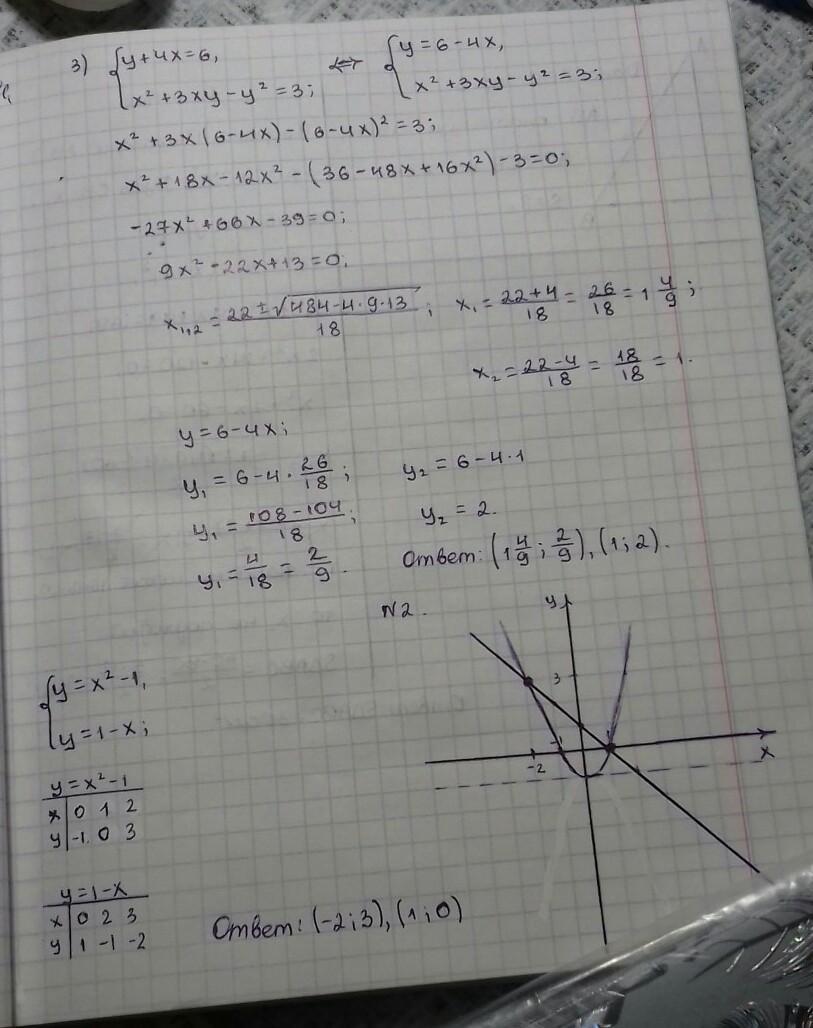 3) { y+4x=6, ⇔ { y=6-4x,
x²+3xy-y²=3; x²+3xy-y²=3;
x²+3x(6-4x)-(6-4x)²=3;
x²+18x-12x²-(36-48x+16x²)-3=0;
-27x²+66x-39=0;
9x²-22x+13=0.
x₁,₂=22±√484-4·9·13/18; x₁=22+4/18=26/18=1 4/9;
x₂=22-4/18=18/18=1.
y=6-4x;
y₁=6-4·26/18; y₂=6-4·1
y₁=108-104/18; y₂=2.
y₁=4/18=2/9. Ответ: (1 4/9; 2/9), (1; 2).
N2.
{ y=x²-1,
y=1-x;
y=x²-1
x | 0 1 2
y | -1 0 3
y=1-x
x | 0 2 3
y | 1 -1 -2
Ответ: (-2;3), (1;0)
y
3
-2 -1 1
x